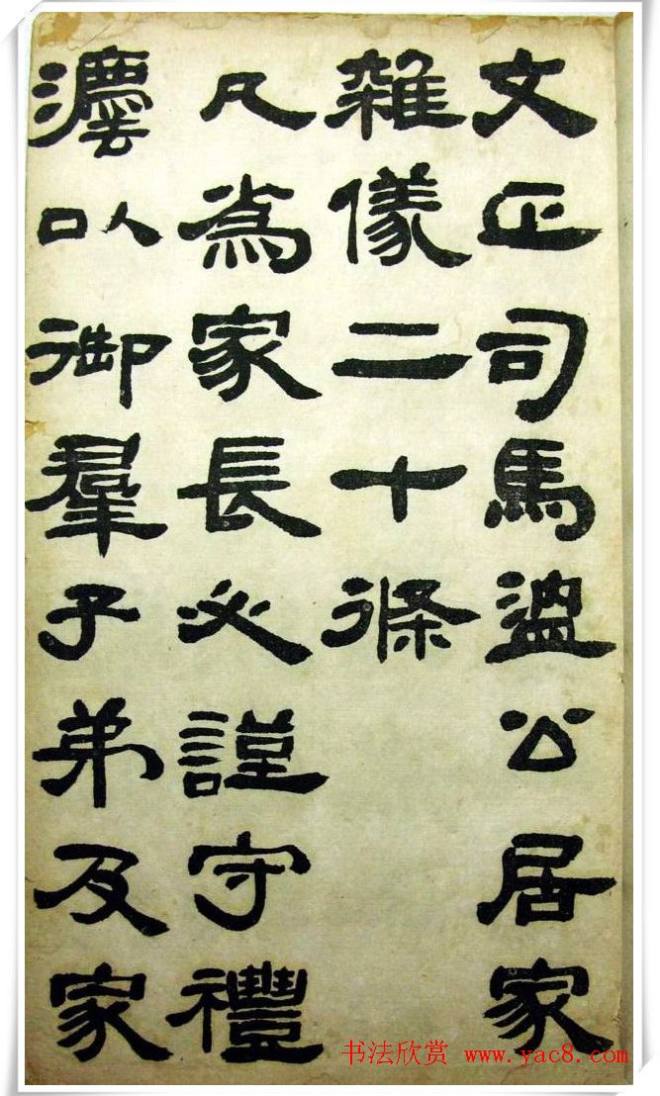 文正司馬溫公居家
雜儀二十條
凡爲家長必謹守禮
灋以御羣子弟及家
书法欣赏 www.yac8.com